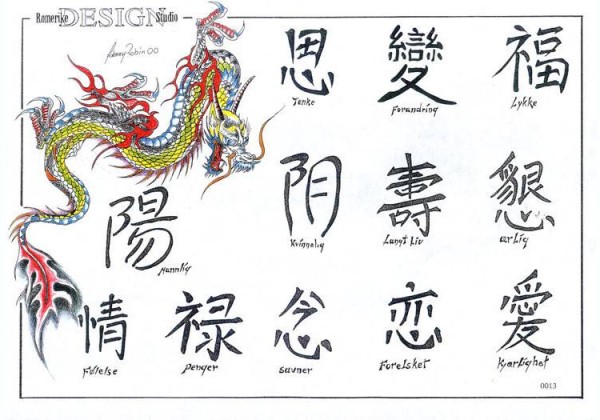 Romerike DESIGN Studio
恩 變 福
Tenke Forandring Lykke
陽 阴 壽 懇
Mannlig Kvinnelig Langt Liv ærlig
情 禄 念 恋 愛
Følelse Penger Savner Forelsket Kjærlighet
0013